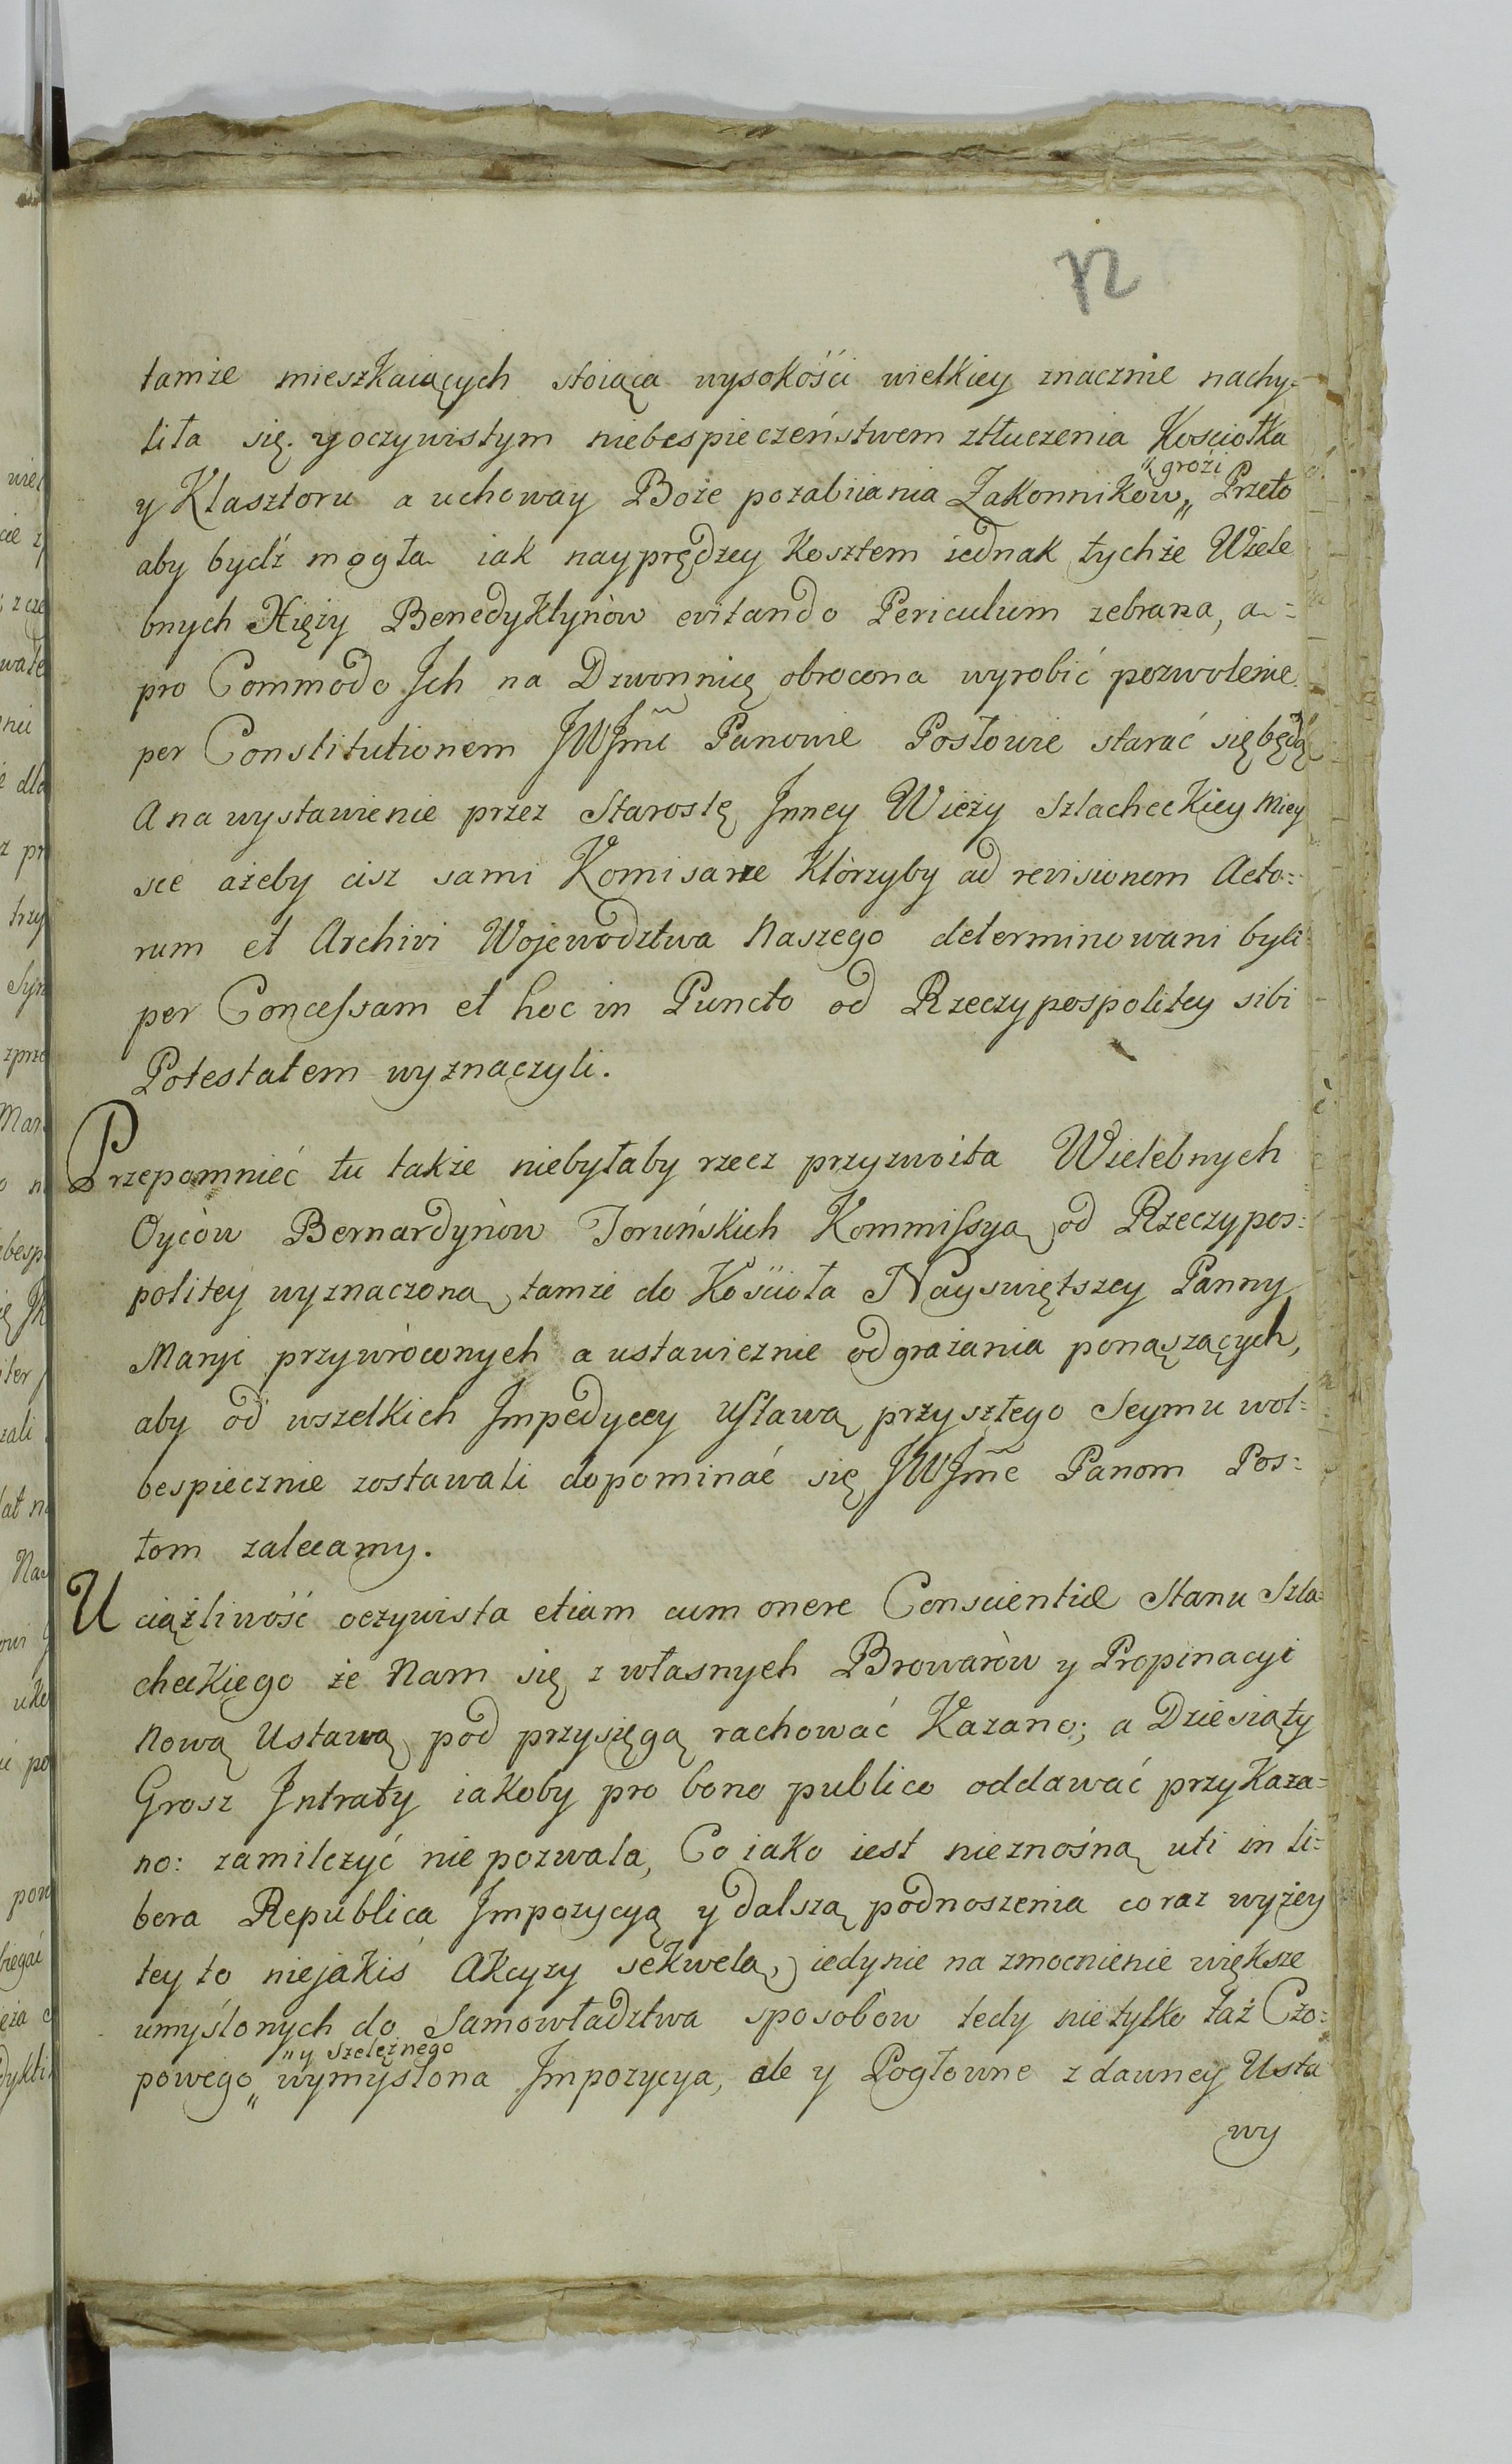 12
tamże mieszkaiących stoiąca wysokośći wielkiey znacznie nachy=
liła się. y oczywistym niebespieczeństwem ztłuczenia Kosciołka
y Klasztoru a uchoway Boże pozabiiania Zakonnikòw „ grozi „ Przeto
aby bydź mogła iak nayprędzey Kosztem iednak tychże Wiele
bnych Xięży Benedyktynòw evitando Periculum zebrana, a=
pro Commodo Ich na Dzwonnicę obrocona wyrobić pozwolenie
per Constitutionem JWJmć Panowie Posłowie starać się będą
A na wystawienie przez Starostę Jnney Wieży Szlacheckiey Miey
sce ażeby ciż sami Komisarze Ktòrzyby ad revisionem Acto=
rum et Archivi Wojewodztwa Naszego determinowani byli
per Concessam et hoc in Puncto od Rzeczypospolitey sibi
Potestatem wyznaczyli.
Przepomnieć tu także niebyłaby rzecz przyzwoita Wielebnych
Oycòw Bernardynòw Toruńskich Kommissyą od Rzeczypos=
politey wyznaczoną tamże do Kościoła Nayswiętszey Panny
Maryi przywròconych a ustawicznie odgrażania ponaszących,
aby od wszelkich Jmpedycyy Ustawą przyszłego Seymu wol=
bespiecznie zostawali dopominać się JWJmć Panom Pos=
łom zalecamy.
Uciążliwość oczywista etiam cum onere Conscientiæ Stanu Szla=
checkiego że Nam się z własnych Browaròw y Propinacyi
Nową Ustawą pod przysięgą rachować Kazano; a Dziesiąty
Grosz Jntraty iakoby pro bono publico oddawać przykaza=
no: zamilczyć nie pozwala, Co iako iest nieznośną uti in li=
bera Republica Jmpozycyą y dalszą podnoszenia coraz wyżey
tey to niejakiś Akcyzy sekwelą, iedynie na zmocnienie większe
umyślonych do Samowładztwa sposobòw tedy nie tylko taż Czo=
powego „ y Szelężnego „ wymyslona Jmpozycya, ale y Pogłowne z dawney Usta
wy